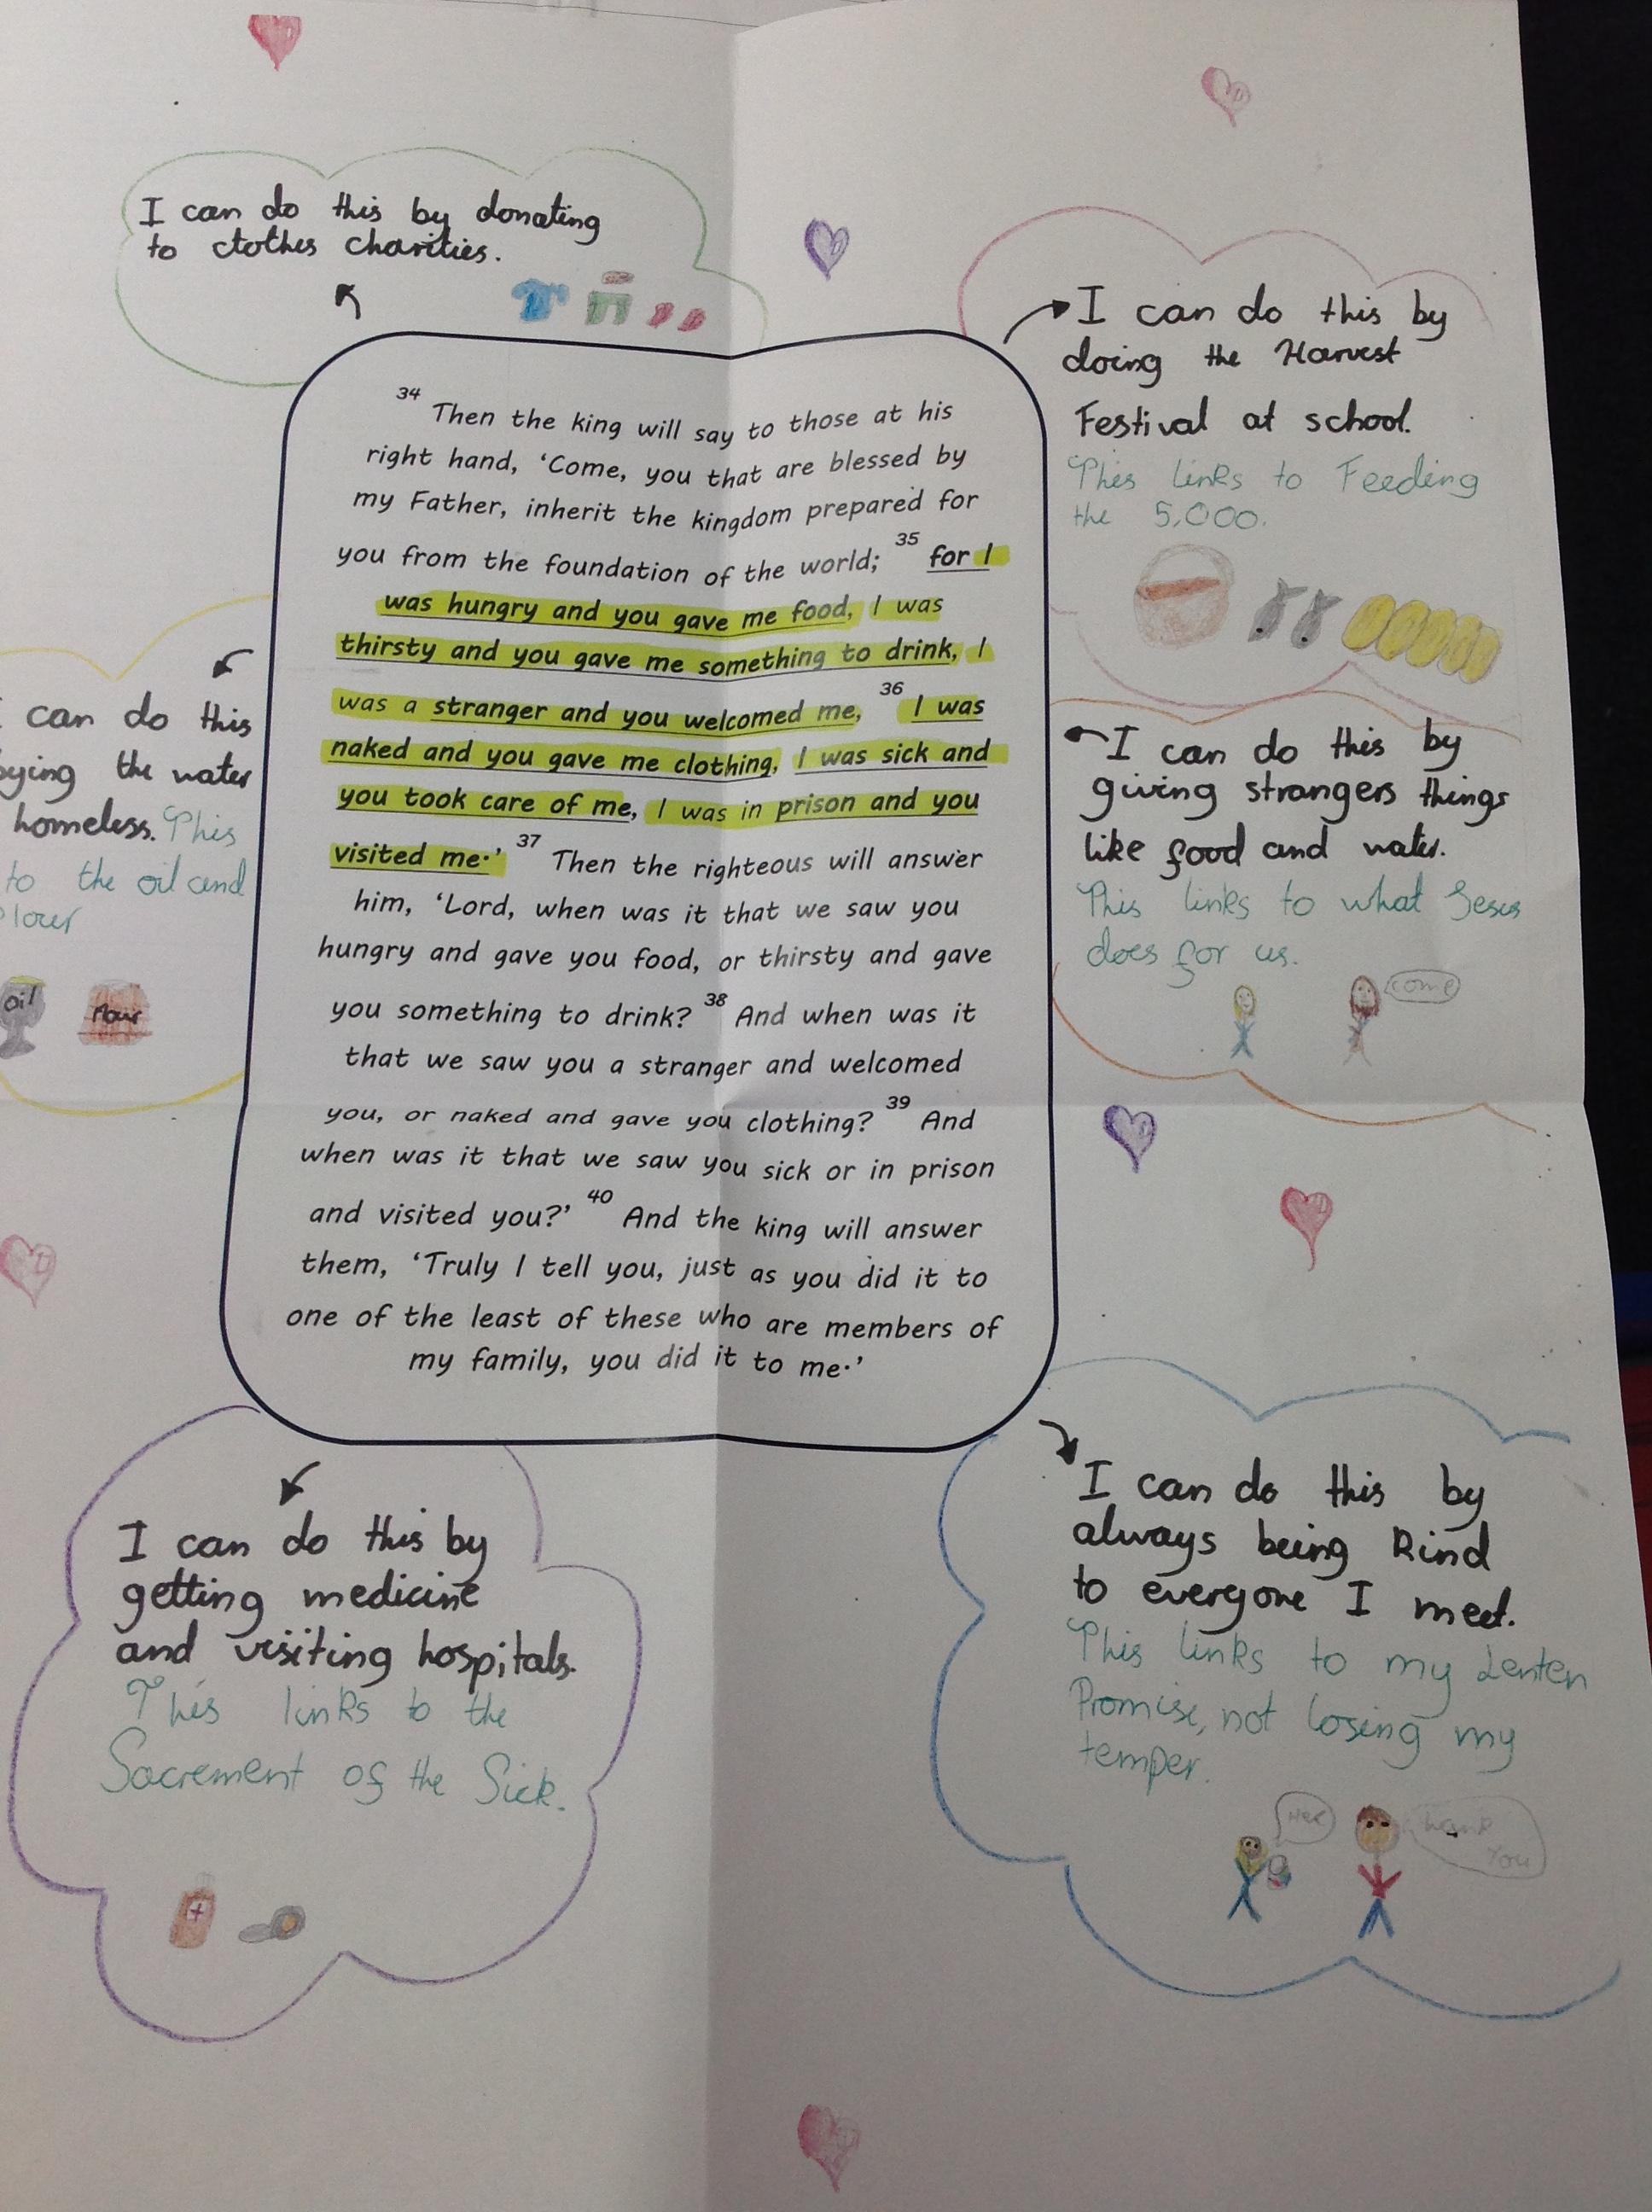 I can do this by donating
to clothes charities.
I can do this by
doing the Harvest
Festival at school.
This links to Feeding
the 5,000.
34 Then the king will say to those at his
right hand, ‘Come, you that are blessed by
my Father, inherit the kingdom prepared for
you from the foundation of the world; 35 for I
was hungry and you gave me food, I was
thirsty and you gave me something to drink, I
was a stranger and you welcomed me, 36 I was
naked and you gave me clothing, I was sick and
you took care of me, I was in prison and you
visited me.’ 37 Then the righteous will answer
him, ‘Lord, when was it that we saw you
hungry and gave you food, or thirsty and gave
you something to drink? 38 And when was it
that we saw you a stranger and welcomed
you, or naked and gave you clothing? 39 And
when was it that we saw you sick or in prison
and visited you?’ 40 And the king will answer
them, ‘Truly I tell you, just as you did it to
one of the least of these who are members of
my family, you did it to me.’
can do this
the water
homeless. This
to the oil and
oil
flour
I can do this by
giving strangers things
like food and water.
This links to what Jesus
does for us.
come
I can do this by
getting medicine
and visiting hospitals.
This links to the
Sacrement of the Sick.
I can do this by
always being kind
to everyone I meet.
This links to my Lenten
Promise, not losing my
temper.
thank
you